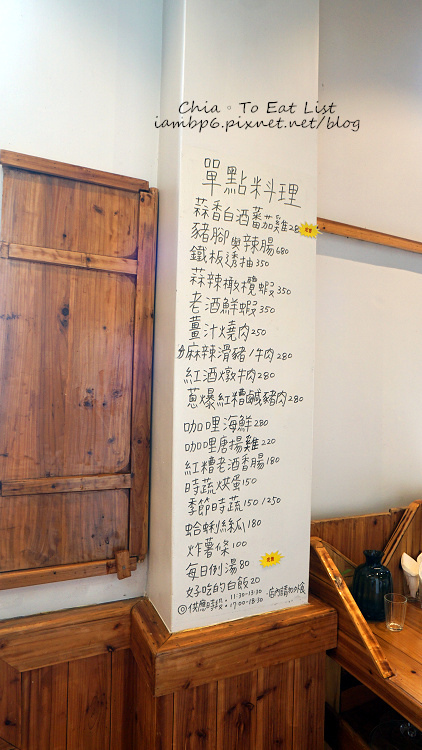 Chia。To Eat List
iambp6.pixnet.net/blog
單點料理
蒜香白酒蕃茄雞 280
豬腳與辣腸 680
鐵板透抽 350
蒜辣橄欖蝦 350
老酒鮮蝦 350
薑汁燒肉 250
麻辣滑豬/牛肉 280
紅酒燉牛肉 280
蔥爆紅糟鹹豬肉 280
咖哩海鮮 280
咖哩唐揚雞 220
紅糟老酒香腸 180
時蔬烘蛋 150
季節時蔬 150/250
蛤蜊絲瓜 180
炸薯條 100
每日例湯 80
好吃的白飯 20
◎供應時段:11:30-13:30
17:00-18:30
店內請勿外食